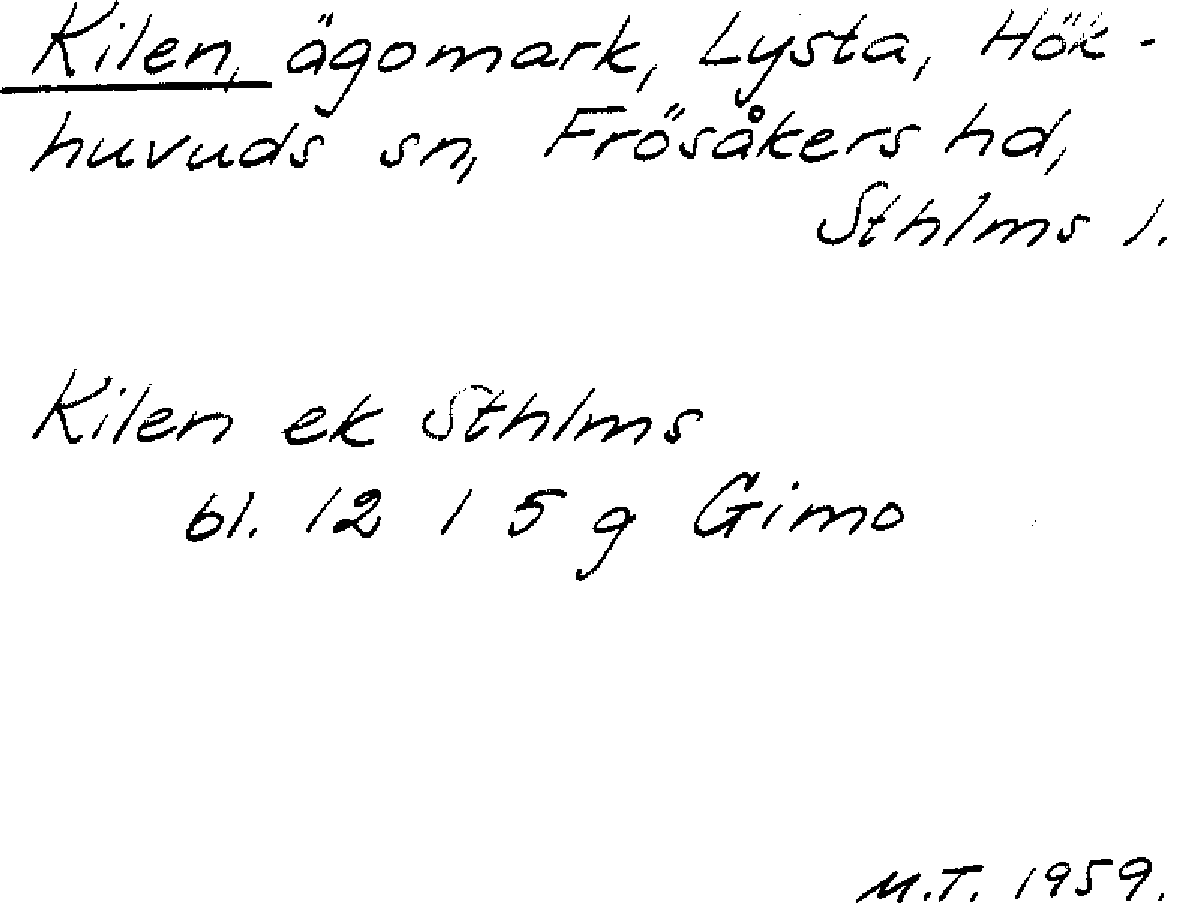 Kilen, ägomark, Lysta, Hök-
huvuds sn, Frösåkers hd,
Sthlms l.
Kilen ek Sthlms
bl. 12 I 5 g Gimo
M.T. 1959.